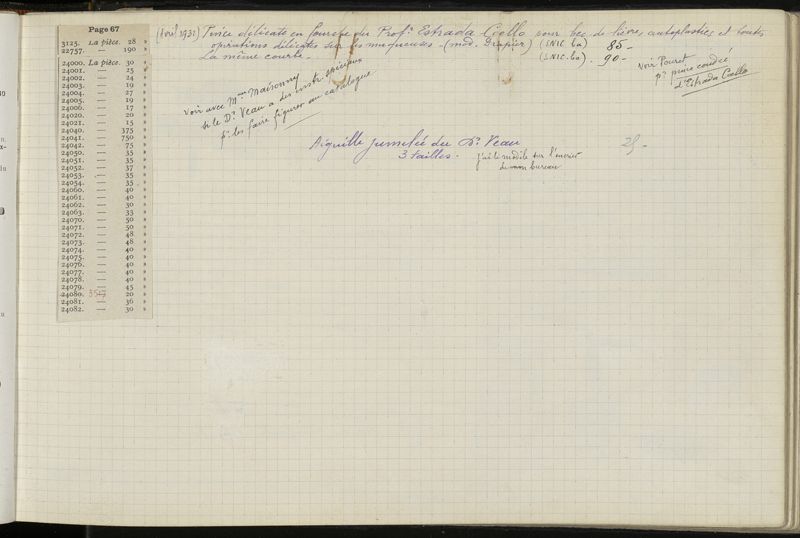 Page 67
3125. La pièce. 28 »
22757. — 190 »
24000. La pièce. 30 »
24001. — 25 »
24002. — 24 »
24003. — 19 »
24004. — 27 »
24005. — 19 »
24006. — 17 »
24020. — 20 »
24021. — 15 »
24040. — 375 »
24041. — 750 »
24042. — 75 »
24050. — 35 »
24051. — 35 »
24052. — 37 »
24053. — 35 »
24054. — 35 »
24060. — 40 »
24061. — 40 »
24062. — 30 »
24063. — 35 »
24070. — 50 »
24071. — 50 »
24072. — 48 »
24073. — 48 »
24074. — 40 »
24075. — 40 »
24076. — 40 »
24077. — 40 »
24078. — 40 »
24079. — 45 »
24080. 20 »
24081. — 36 »
24082. — 30 »
(Avril 1932) Pince délicate en fourche du Profr Estrada Ciello pour bec de lièvre, autoplasties et toutes
opérations délicates sur les muqueuses - (mod. Drapier) (SNIC. ba) 85 -
La même courbe. (SNIC. ba) . 90 -
Voir Pouret
pr pince coudée
d'Estrada Ciello
Voir avec Mme Maisonny
si le Dr Veau a des instr spéciaux
pr les faire figurer au catalogue
Aiguille jumelée du Dr Veau 25 -
3 tailles. j'ai le modèle sur l'encrier
de mon bureau